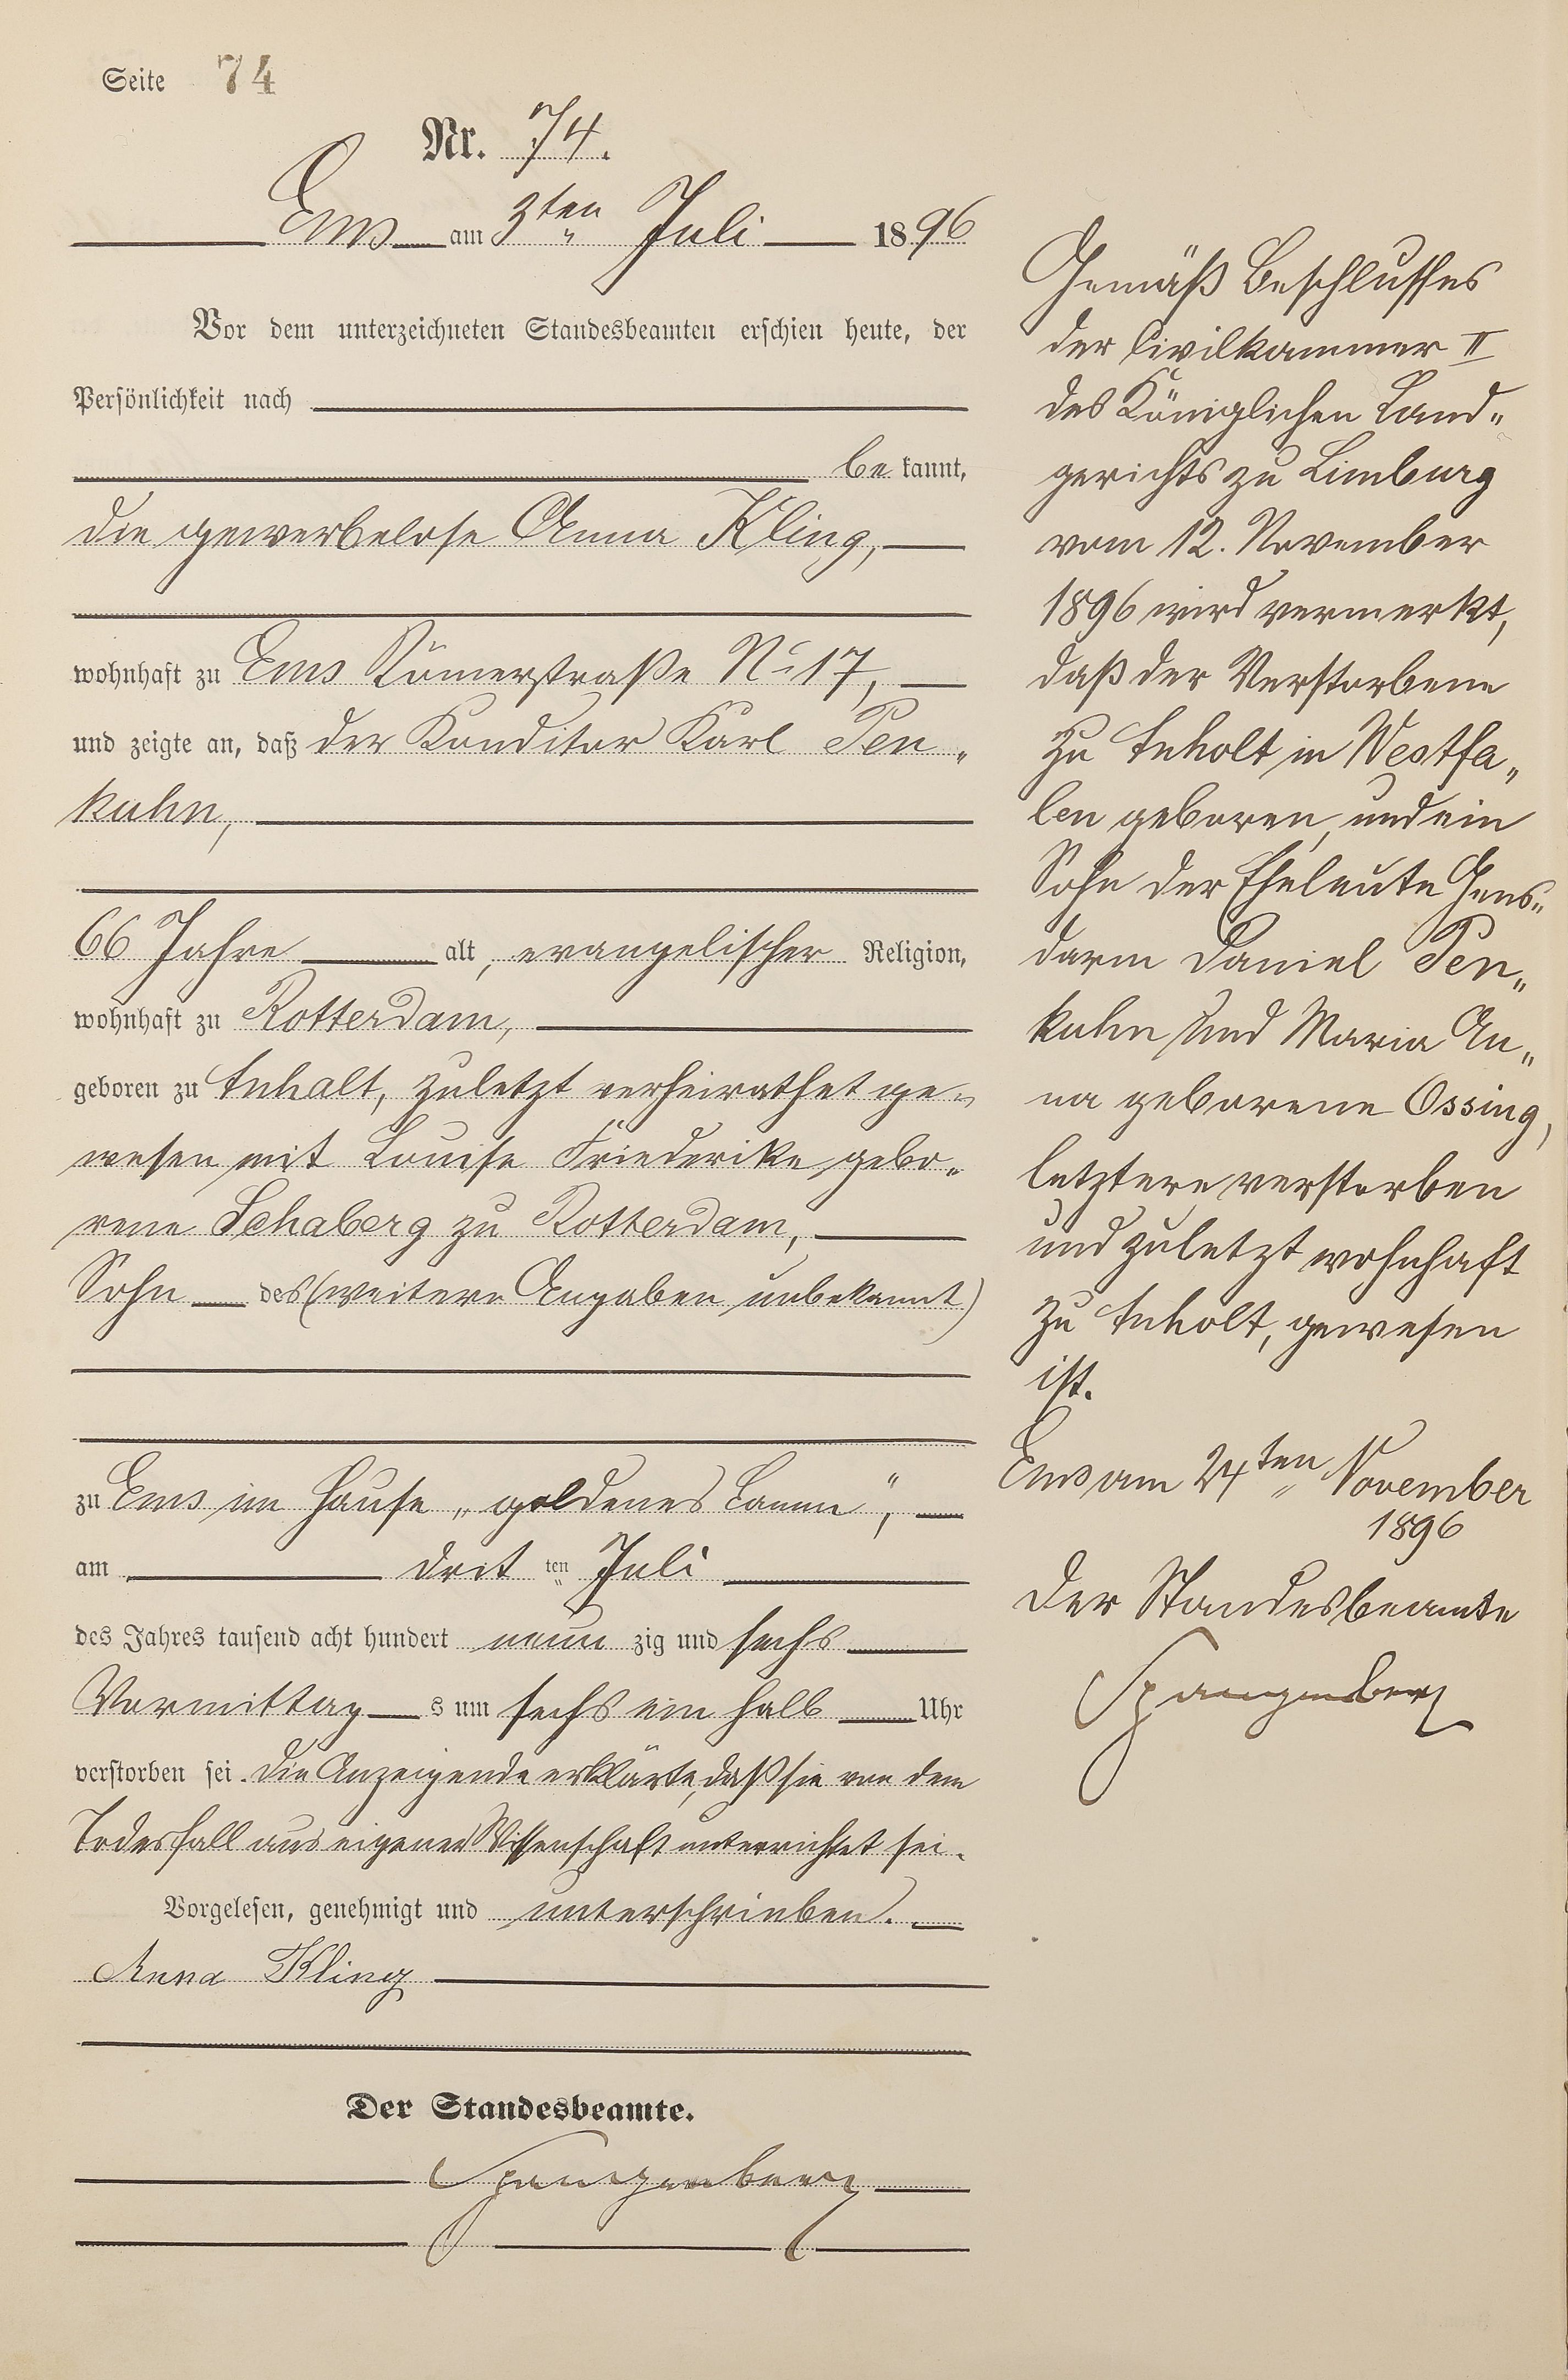 Seite 74
Nr. 74.
Ems am 3ten Juli 1896
Vor dem unterzeichneten Standesbeamten erschien heute, der
Persönlichkeit nach
be kannt,
die gewerbelose Anna Kling,
wohnhaft zu Ems Römerstraße No 17,
und zeigte an, daß der Konditor Karl Pen„
kuhn,
66 Jahre alt, evangelischer Religion,
wohnhaft zu Rotterdam,
geboren zu Anhalt, zuletzt verheirathet ge„
wesen mit Louise Friederike gebo„
rene Schaberg zu Rotterdam,
Sohn des (weitere Angaben unbekannt)
zu Ems im Hause „goldenes Lamm“,
am drit ten Juli
des Jahres tausend acht hundert neun zig und sechs
Vormittag s um sechs ein halb Uhr
verstorben sei. Die Anzeigende erklärte, daß sie von dem
Todesfall aus eigener Wissenschaft unterrichtet sei.
Vorgelesen, genehmigt und unterschrieben.
Anna Kling
Der Standesbeamte.
Spangenberg
Gemäß Beschlusses
der Civilkammer II
des Königlichen Land„
gerichts zu Limburg
vom 12. November
1896 wird vermerkt,
daß der Verstorbene
zu Anholt in Westfa„
len geboren, und ein
Sohn der Eheleute Gens„
darm Daniel Pen„
kuhn und Maria An„
na geborene Ossing,
letztere verstorben
und zuletzt wohnhaft
zu Anholt, gewesen
ist.
Ems am 24ten November
1896
Der Standesbeamte
Spangenberg